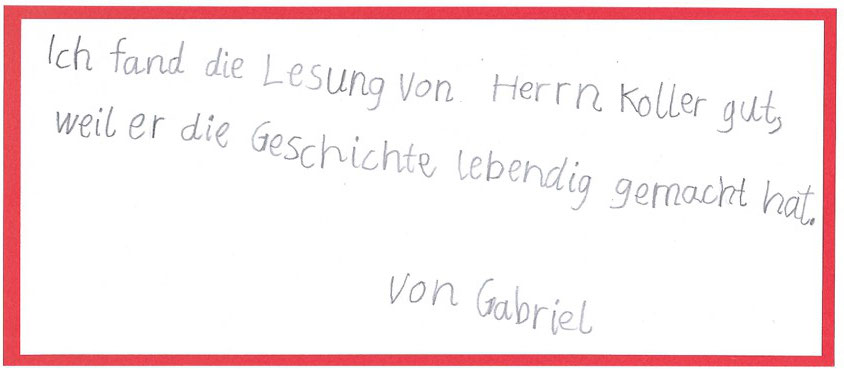 Ich fand die Lesung von Herrn Koller gut,
weil er die Geschichte lebendig gemacht hat.
von Gabriel